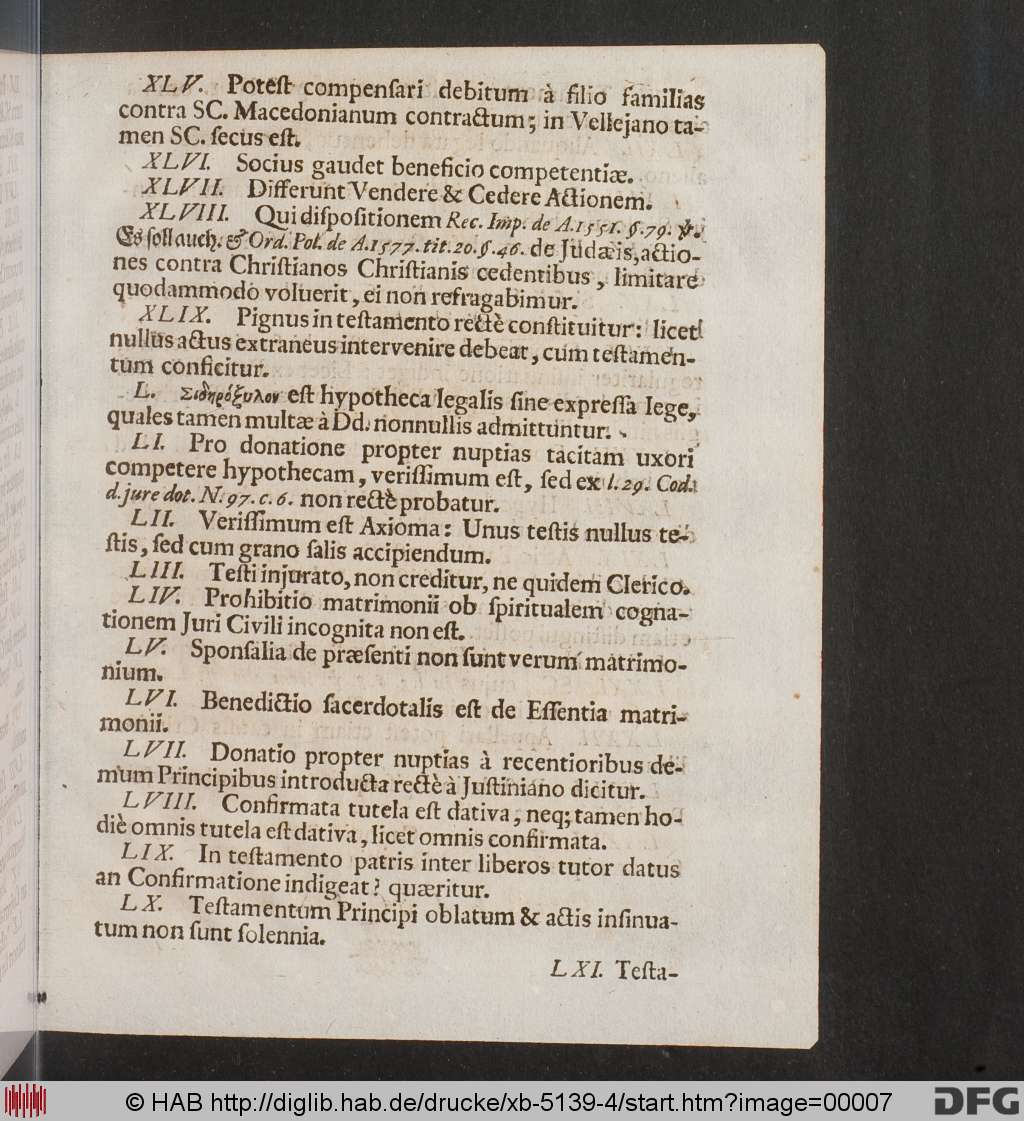 XLV. Poteſt compenſari debitum à filio familias
contra SC. Macedonianum contractum; in Vellejano ta-
men SC. ſecus eſt.
XLVI. Socius gaudet beneficio competentiæ.
XLVII. Differunt Vendere & Cedere Actionem.
XLVIII. Qui diſpoſitionem Rec. Imp. de A. 1551. §. 79. ℣.
Es ſoll auch. & Ord. Pol. de A. 1577. tit. 20. §. 46. de Judæis, actio-
nes contra Chriſtianos Chriſtianis cedentibus, limitare
quodammodò voluerit, ei non refragabimur.
XLIX. Pignus in teſtamento rectè conſtituitur: licet
nullus actus extraneus intervenire debeat, cum teſtamen-
tum conficitur.
L. Σιδηρόξυλον eſt hypotheca legalis ſine expreſſa lege,
quales tamen multæ à Dd. nonnullis admittuntur.
LI. Pro donatione propter nuptias tacitam uxori
competere hypothecam, veriſſimum eſt, ſed ex l. 29. Cod.
d. jure dot. N. 97. c. 6. non rectè probatur.
LII. Veriſſimum eſt Axioma: Unus teſtis nullus te-
ſtis, ſed cum grano ſalis accipiendum.
LIII. Teſti injurato, non creditur, ne quidem Clerico.
LIV. Prohibitio matrimonii ob ſpiritualem cogna-
tionem Juri Civili incognita non eſt.
LV. Sponſalia de præſenti non ſunt verum matrimo-
nium.
LVI. Benedictio ſacerdotalis eſt de Eſſentia matri-
monii.
LVII. Donatio propter nuptias à recentioribus de-
mum Principibus introducta rectè à Juſtiniano dicitur.
LVIII. Confirmata tutela eſt dativa, neq; tamen ho-
diè omnis tutela eſt dativa, licet omnis confirmata.
LIX. In teſtamento patris inter liberos tutor datus
an Confirmatione indigeat? quæritur.
LX. Teſtamentum Principi oblatum & actis inſinua-
tum non ſunt ſolennia.
LXI. Teſta-
© HAB http://diglib.hab.de/drucke/xb-5139-4/start.htm?image=00007
DFG